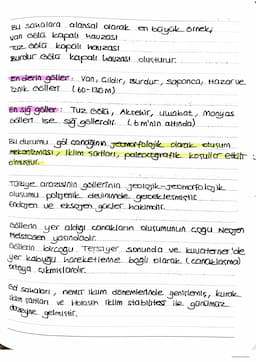 Bu sahalara alansal olarak en büyük örnek,
Van Gölü kapalı havzası
Tuz Gölü kapalı havzası
Burdur Gölü kapalı havzası oluşturur.
En derin göller: Van, Çıldır, Burdur, Sapanca, Hazar ve
İznik Gölleri (60-130 m)
En sığ göller: Tuz Gölü, Akşehir, Uluabat, Manyas
Gölleri ise sığ göllerdir. (6 m'nin altında)
Bu durumu göl çanağının jeomorfolojik olarak oluşum
mekanizması, iklim şartları, paleocoğrafik koşullar etkili
olmuştur.
Türkiye arazisinin göllerinin jeolojik-jeomorfolojik
oluşumu poligenik gerçekleşmiştir
Endojen ve eksojen güçler hakimdir.
Göllerin yer aldığı çanakların oluşumunun çoğu Neojen
Pleistosen yaşındadır.
Göllerin birçoğu Tersiyer sonunda ve kuvaterner'de
yer kabuğu hareketlerine bağlı olarak (çanaklaşma)
ortaya çıkmışlardır.
Göl sahaları, nemli iklim dönemlerinde genişlemiş, kurak
iklim şartları ve Holosen iklim stabilitesi ile günümüz
düzeyine gelmiştir.